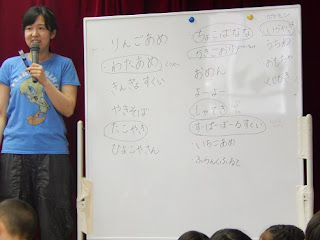 りんごあめ
わたあめ
きんぎょすくい
やきそば
たこやき
ひよこやさん
ちょこばなな
かきごおり
おめん
よーよー
しゃてき
すーぱーぼーるすくい
いちごあめ
ふらんくふると
うちわ